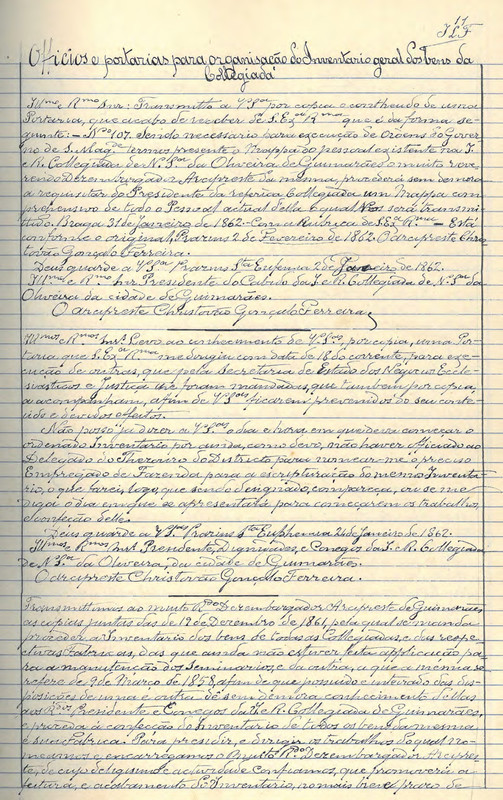 17
JLF
Officios e portarias para organisação do Inventario geral dos bens da
Collegiada
Illmo e Rmo Snr: Transmitto a V Sa por copia o contheudo de uma
Portaria, que acabo de receber de Sa Exa Rma que é da forma se-
guinte: – No 107. Sendo necessario para execução de Ordens do Gover-
no de S. Mage termos presente o Mappa do pessoal existente na I.
e R. Collegiada de N. Sra da Oliveira de Guimarães o muito reve-
rendo Dezembargador Arcipreste da mesma, procederá sem demora
a requisitar do Presidente da referida Collegiada um Mappa com-
prehensivo de todo o Pessoal actual della o qual Nos será transmit-
tido. Braga 31 de Janeiro de 1862 – Com a Rubrica de S. Exa Rma – Está
conforme o original, Prazins 2 de Fevereiro de 1862. O arcipreste Chris-
tovão Gonçalo Ferreira.
Deus guarde a V Sa Prazins Sta Eufemia 2 de Janeiro de 1862.
Illmo e Rmo Snr. Presidente do Cabido da I. e R. Collegiada de N. Sra da
Oliveira da cidade de Guimarães.
O arcipreste Christovão Gonçalo Ferreira,
Illmos e Rmos Snrs. Levo ao conhecimento de V. Sas, por copia, uma Por-
taria que S. Exa Rma me dirigiu com data de 18 do corrente, para exe-
cução de outras, que pela Secretaria de Estado dos Negocios Eccle-
siasticos e Justiça lhe foram mandadas, que tambem por copia,
a acompanham, a fim de V. Sas ficarem prevenidos do seu conte-
údo e devidos effeitos.
Não posso já dizer a V. Sas o dia e hora, em que deva começar o
ordenado Inventario por ainda, como devo, não haver officiado ao
Delegado do Thezoiro do Districto para nomear-me o preciso
Empregado de Fazenda para a escripturação do mesmo Inventa-
rio, o que farei, logo, que sendo designado, compareça, ou se me
diga o dia em que se apresentará para começarem os trabalhos,
e confecção delle.
Deus guarde a V. Sas Prazins Sta Euphemia 21 de Janeiro de 1862.
Illmos e Rmos Snrs. Presidente, Dignidades, e Conegos da I. e R. Collegiada
de N. Sra da Oliveira, da cidade de Guimarães.
O arcipreste Christovão Gonçalo Ferreira.
Transmittimos ao muito Rdo Dezembargador Arcipreste de Guimarães
as copias juntas das de 12 de Dezembro de 1861, pela qual se manda
proceder a Inventario dos bens de todas as Collegiadas, e das respe-
ctivas Fabricas, das que ainda não estiver feita applicação pa-
ra a manutenção dos Seminarios, e da outra, a que a mesma se
refere de 9 de Março de 1858, a fim de que possuido e inteirado das dis-
posições de uma e outra dê sem demora conhecimento dellas
aos Rdos Presidente e Conegos da I. e R. Collegiada de Guimarães,
e proceda á confecção do Inventario de todos os bens da mesma
e sua Fabrica. Para presidir, e dirigir os trabalhos do qual no-
meamos e encarregamos o Muito Rdo Dezembargador Arcipres-
te, de cujo zelo e actividade confiamos, que promoverá a
feitura, e acabamento do Inventario, no mais breve prazo de